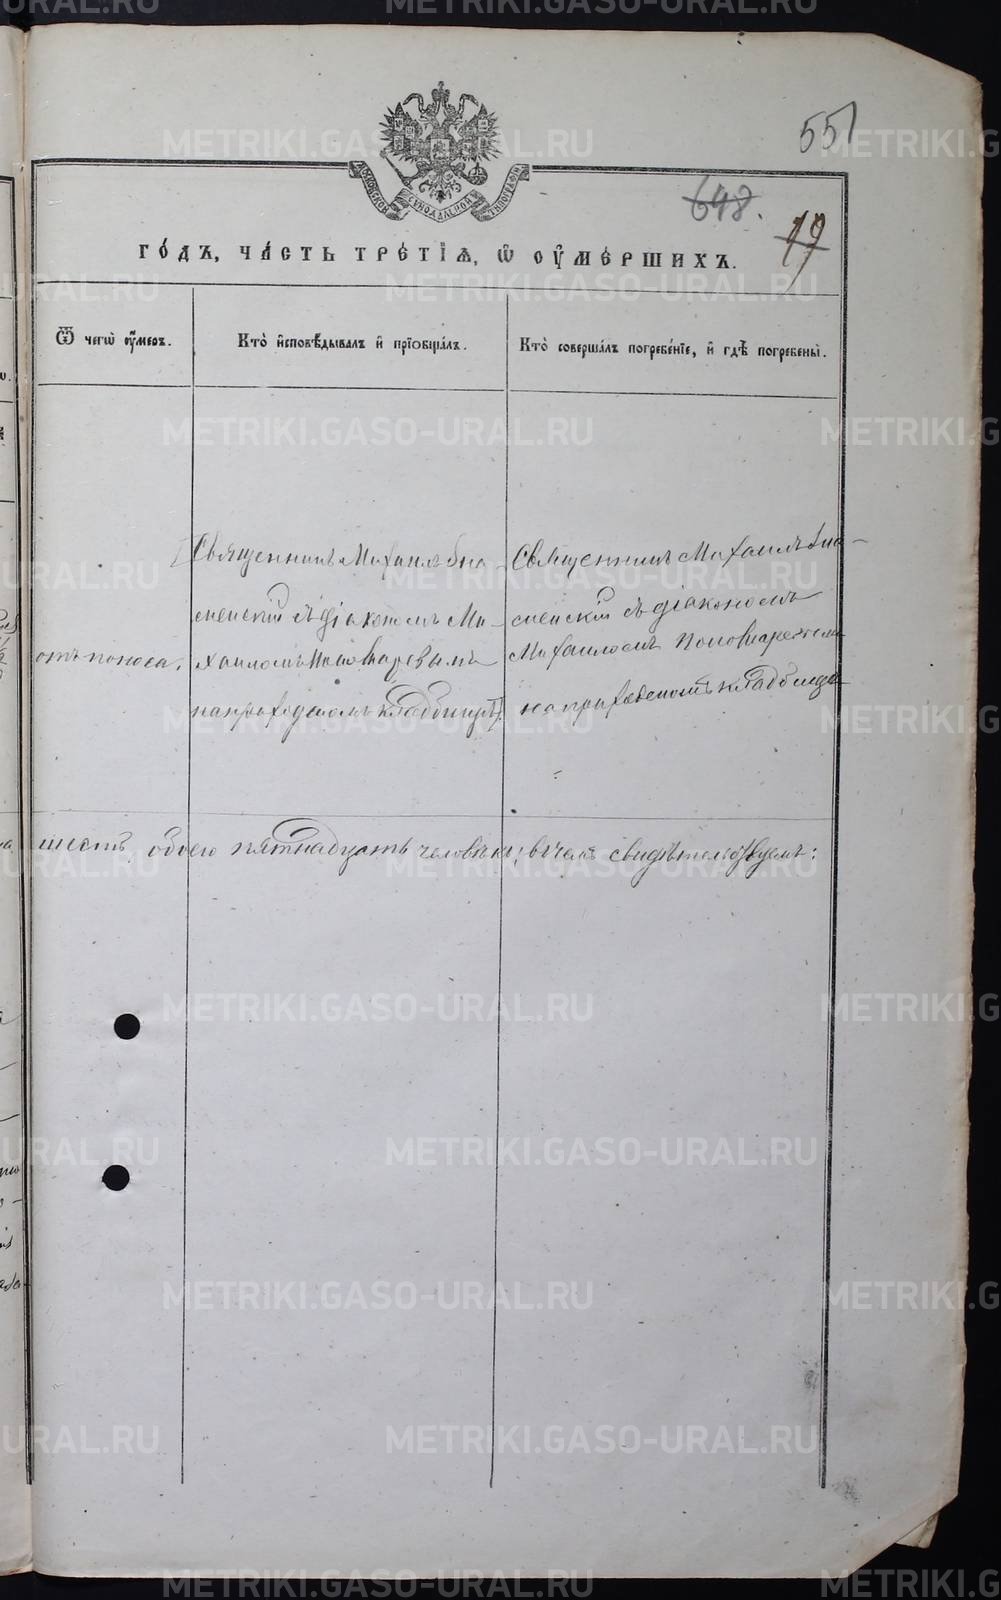 551
МОСКОВСКОЙ СѴНОДАЛЬНОЙ ТИПОГРАФІИ
648.
19
ГО́ДЪ, ЧА́СТЬ ТРЕ́ТІѦ, Ѡ҆ ОУ҆МЕ́РШИХЪ.
Ѿ чегѡ̀ оу҆́меръ.
Кто̀ и҆сповѣ́дывалъ и҆ прїобща́лъ.
Кто̀ соверша́лъ погребе́нїе, и҆ гдѣ̀ погребены̀.
отъ поноса.
Священникъ Михаилъ
сменскій съ діакономъ Ми-
хаиломъ Пономаревымъ
на приходскомъ кладбищѣ
Священникъ Михаилъ
сменскій съ діакономъ
Михаиломъ Пономаревымъ
на приходскомъ кладбищѣ
шесть, обоего пятнадцать человѣкъ; въ чемъ свидѣтельствуемъ:
METRIKI.GASO-URAL.RU